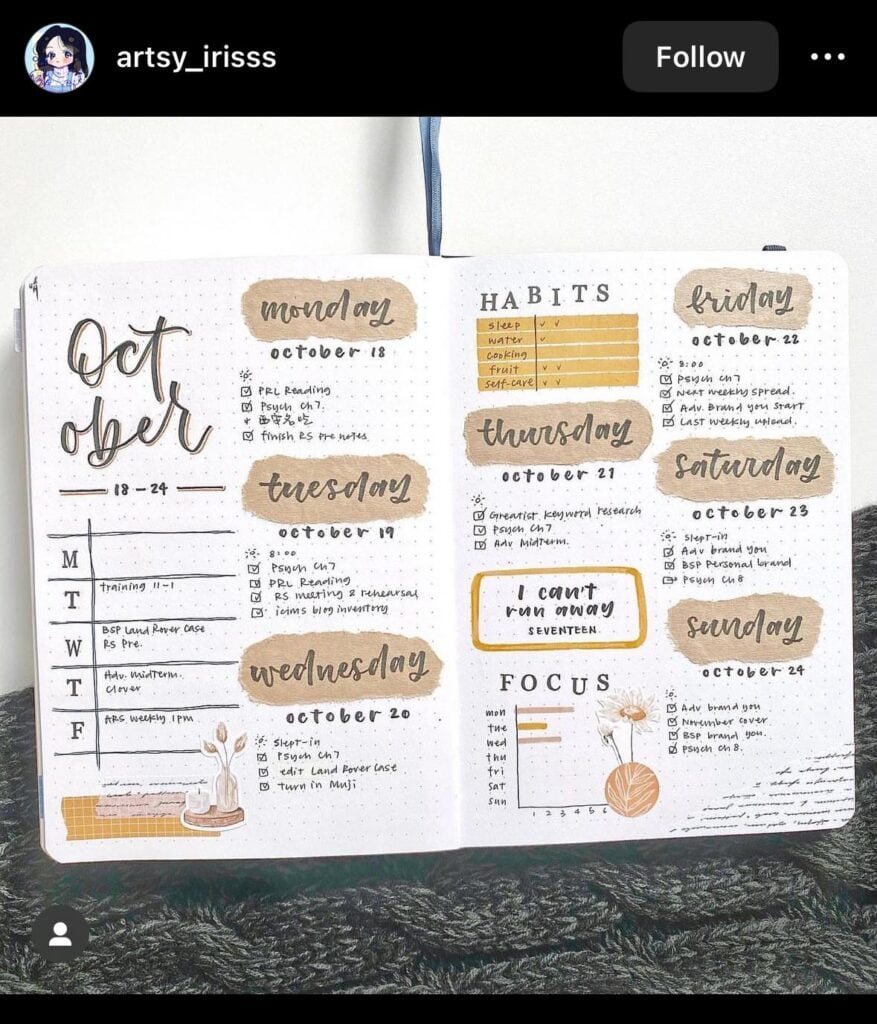 artsy_irisss
Follow
Oct
ober
18-24
M
T
Training 11-1
W
BSP Land Rover Case
RS Pre.
T
Adv. Midterm.
Clover
F
ARS Weekly 1pm
monday
october 18
PRL Reading
Psych Ch7.
finish RS pre notes
tuesday
october 19
8:00
Psych Ch7
PRL Reading
RS meeting & rehearsal
icims blog inventory
wednesday
october 20
Slept-in
Psych Ch7
edit Land Rover Case
turn in Muji
HABITS
sleep
water
cooking
fruit
self-care
thursday
october 21
Greatist keyword research
Psych Ch7
Adv Midterm.
I can't
run away
SEVENTEEN
FOCUS
mon
tue
wed
thu
fri
sat
sun
1 2 3 4 5 6
friday
october 22
8:00
Psych Ch7
Next weekly spread.
Adv. Brand you start
Last weekly upload.
saturday
october 23
Slept-in
Adv brand you
BSP Personal brand
Psych Ch 8
sunday
october 24
Adv brand you
November cover
BSP brand you.
Psych Ch 8.